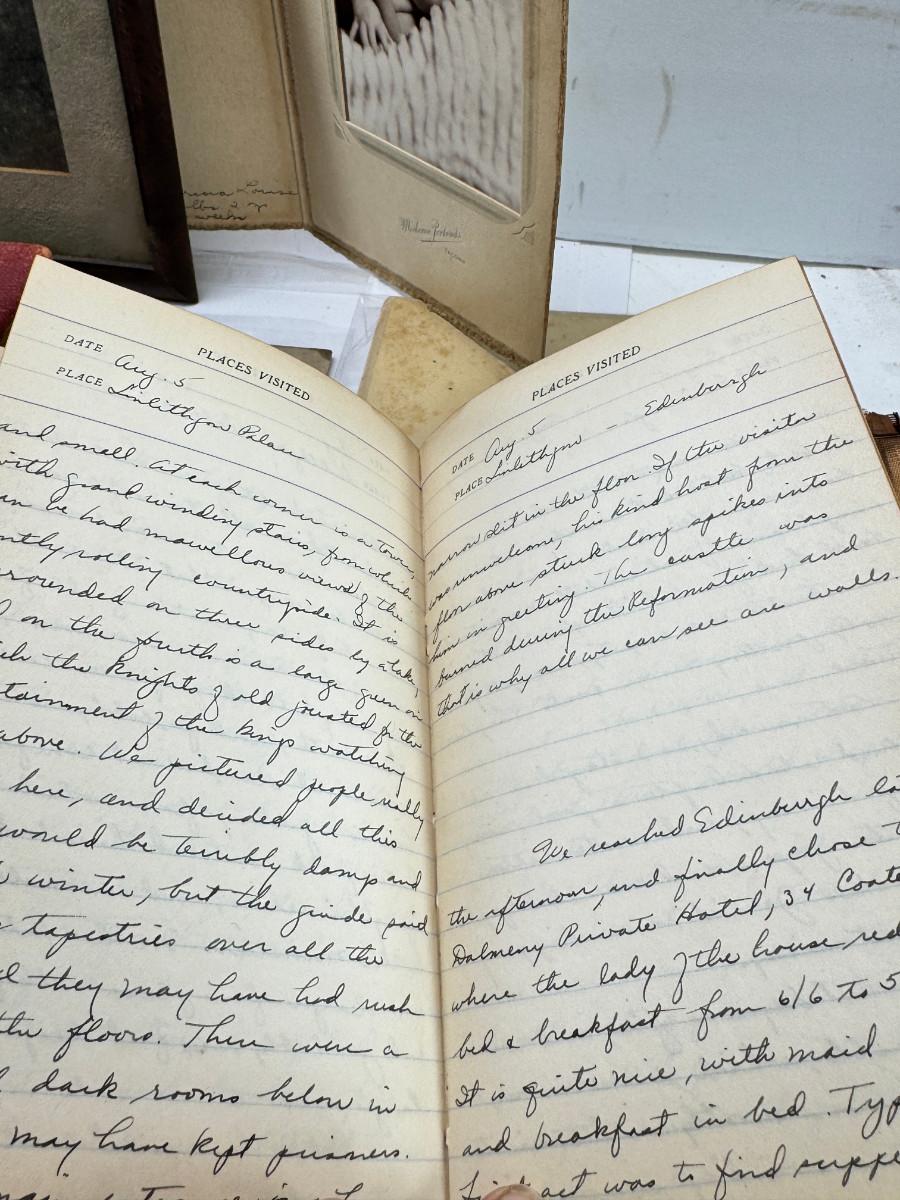 Louise
lbs 2 oz
weeks
Modern Portraits
PLACES VISITED
DATE Aug. 5
PLACE Linlithgow Palace
and small. At each corner is a tower,
with grand winding stairs, from which
he had marvellous views of the
rolling countryside. It is
on three sides by a lake,
on the fourth is a large green on
the Knights of old jousted for the
of the kings watching
above. We pictured people really
here, and decided all this
would be terribly damp and
winter, but the guide said
tapestries over all the
they may have had rush
the floors. There were a
dark rooms below in
may have kept prisoners.
PLACES VISITED
DATE Aug. 5
PLACE Linlithgow - Edinburgh
narrow slit in the floor. If the visitor
was unwelcome, his kind host from the
floor above stuck long spikes into
him in greeting. The castle was
burned during the Reformation, and
that is why all we can see are walls.
We reached Edinburgh
the afternoon, and finally chose
Dalmeny Private Hotel, 34
where the lady of the house
bed & breakfast from 6/6 to 5
It is quite nice, with maid
and breakfast in bed.
act was to find